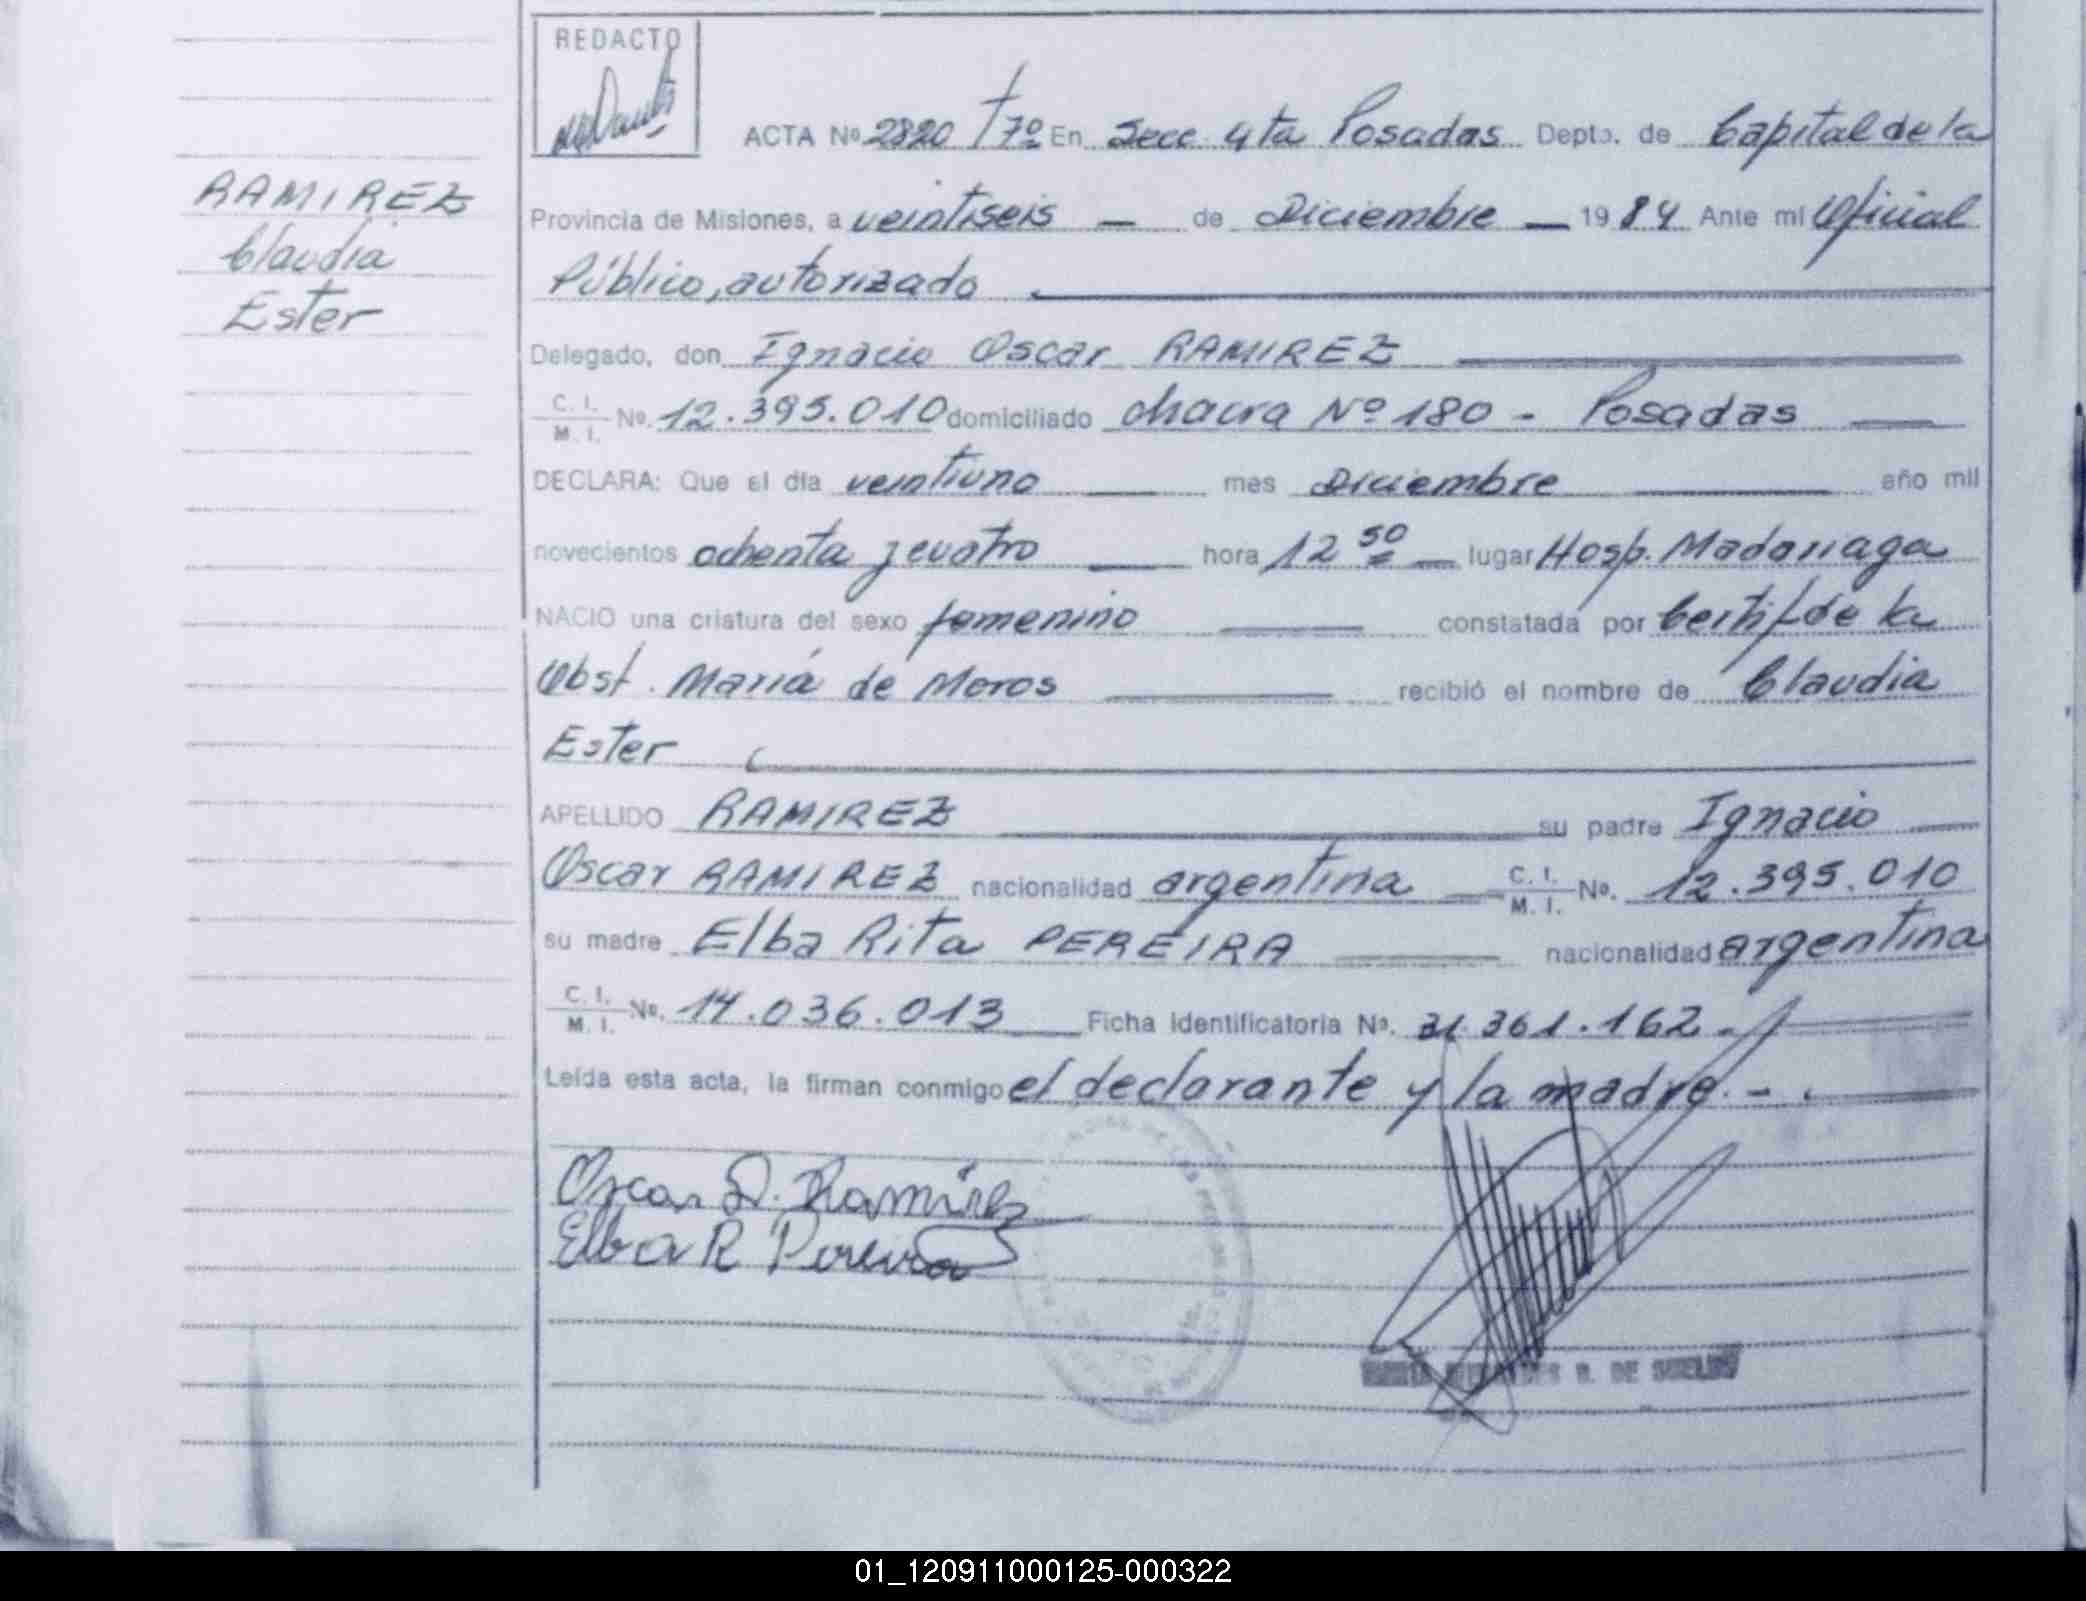 REDACTO
ACTA Nº 2820 Tº 7º En Secc 4ta Posadas Depto. de Capital de la
RAMIREZ
Claudia
Ester
Provincia de Misiones, a veintiseis — de Diciembre — 1984 Ante mi Oficial
Público, autorizado
Delegado, don Ignacio Oscar RAMIREZ
C. I.
M. I. No. 12.395.010 domiciliado chacra Nº 180 - Posadas
DECLARA: Que el día veintiuno mes Diciembre año mil
novecientos ochenta y cuatro hora 12 50 lugar Hosp. Madariaga
NACIO una criatura del sexo femenino constatada por Certif de la
Obst. María de Moros recibió el nombre de Claudia
Ester
APELLIDO RAMIREZ su padre Ignacio
Oscar RAMIREZ nacionalidad argentina C. I.
M. I. No. 12.395.010
su madre Elba Rita PEREIRA nacionalidad argentina
C. I.
M. I. No. 14.036.013 Ficha Identificatoria No. 31.361.162.-
Leída esta acta, la firman conmigo el declarante y la madre. -
Oscar Ramirez
Elba R Pereira
DE SUELDO
01_120911000125-000322